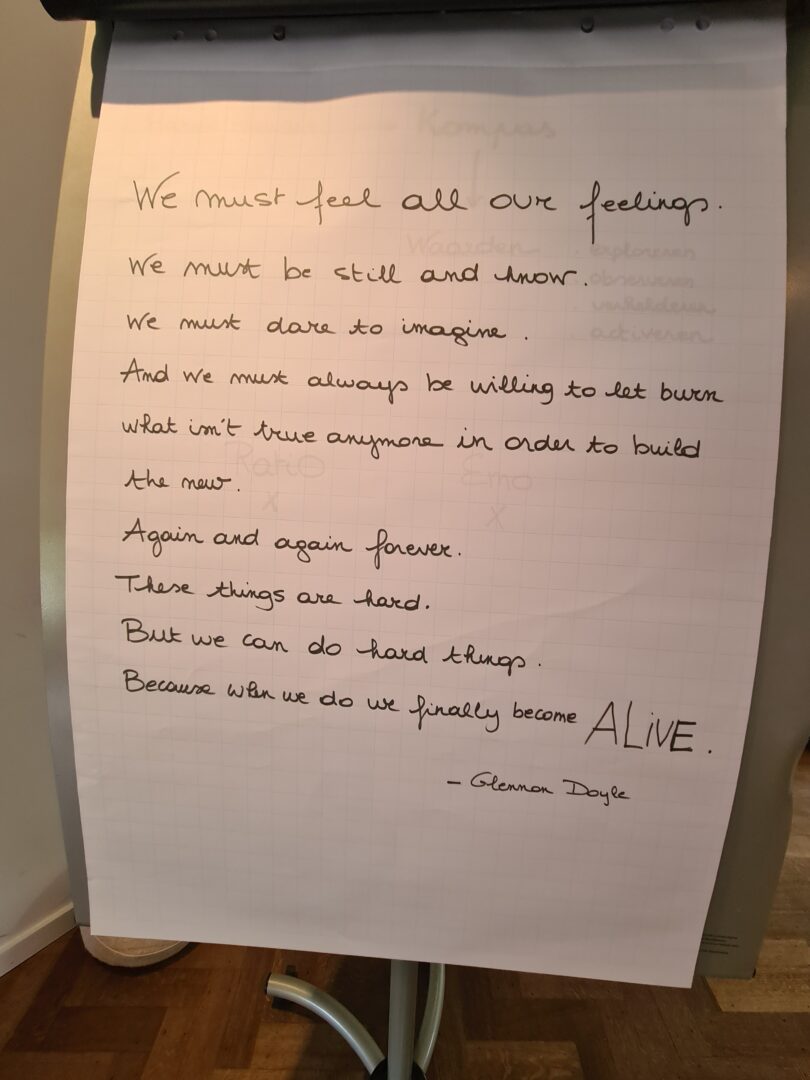 Kompas
We must feel all our feelings.
Waarden exploreren
We must be still and know.
observeren
verhelderen
We must dare to imagine.
activeren
And we must always be willing to let burn
what isn't true anymore in order to build
Ratio Emo
the new.
x x
Again and again forever.
These things are hard.
But we can do hard things.
Because when we do we finally become ALiVE.
- Glennon Doyle